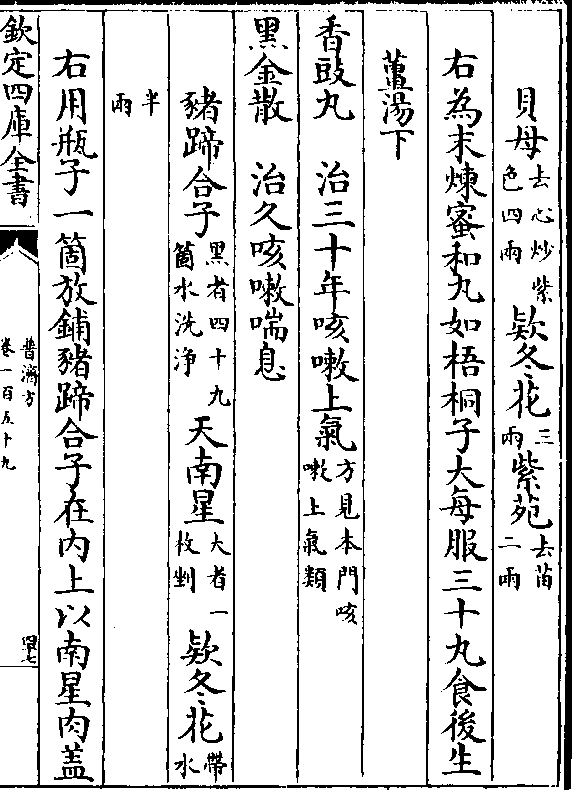 貝母去心炒紫色四兩欵冬花三兩紫苑去苗二兩
右為末煉蜜和丸如梧桐子大每服三十丸食後生
薑湯下
香豉丸 治三十年咳嗽上氣方見本門咳嗽上氣類
黑金散 治久咳嗽喘息
豬蹄合子黑者四十九箇水洗净天南星大者一枚剉欵冬花帶水
半兩
右用瓶子一箇放鋪豬蹄合子在内上以南星肉盖
欽定四庫全書
普濟方
卷一百五十九